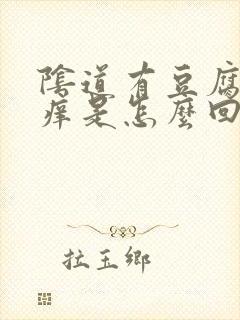 陰道有豆腐
痒是怎麼回
拉玉鄉